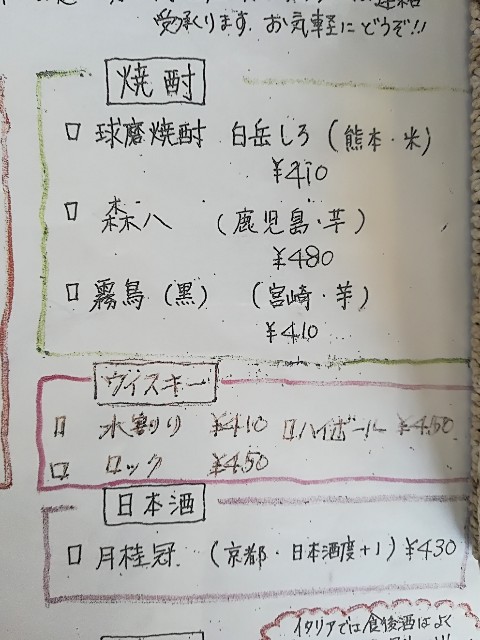 受承ります。お気軽にどうぞ!!
焼酎
球磨焼酎 白岳しろ (熊本・米)
¥410
森八 (鹿児島・芋)
¥480
霧島 (黒) (宮崎・芋)
¥410
ウイスキー
水割り ¥410 ハイボール ¥450
ロック ¥450
日本酒
月桂冠 (京都・日本酒度+1) ¥430
イタリアでは食後酒はよく